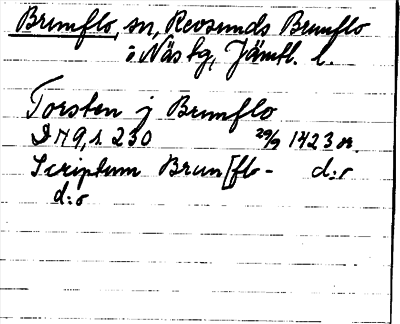 Brunflo, sn, Revsunds Brunflo
o Näs tg, Jämtl. l.
Torsten j Brunflo
DN 9, s. 230 29/9 1423 or.
Scriptum Brun[flo- d:o
d:o